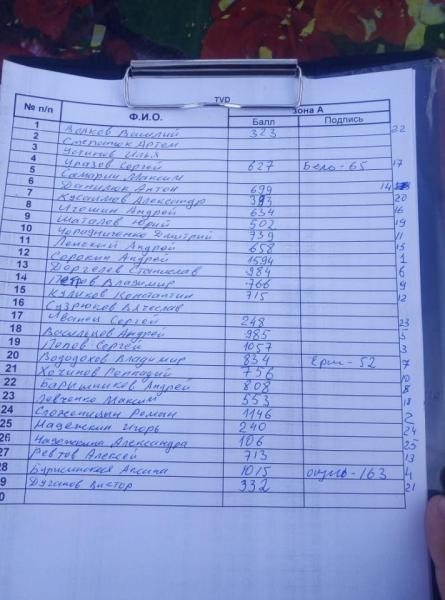 тур
№ п/п Ф.И.О. зона А
Балл Подпись
1 Волков Василий 323 22
2 Степанюк Артем
3 Устинов Илья
4 Уразов Сергей 627 Бело-65 17
5 Самарин Максим
6 Данилюк Антон 699 14
7 Александр 393 20
8 Игошин Андрей 634 16
9 Шаталов Юрий 502 19
10 Дмитрий 739 11
11 Ленский Андрей 658 15
12 Сорокин Андрей 1594 1
13 Станислав 984 6
14 Петров Владимир 766 9
15 Куликов Константин 715 12
16 Сузрюков Вячеслав
17 Иванец Сергей 248 23
18 Васильцев Андрей 985 5
19 Попов Сергей 1057 3
20 Владимир 834 Ерш-52 7
21 Геннадий 756 10
22 Барышников Андрей 808 8
23 Левченко Максим 553 18
24 Роман 1146 2
25 Надежкин Игорь 240 24
26 Надежкина Александра 106 25
27 Ревтов Алексей 713 13
28 1015 окунь-163 4
9 Дуганов Виктор 332 21
0